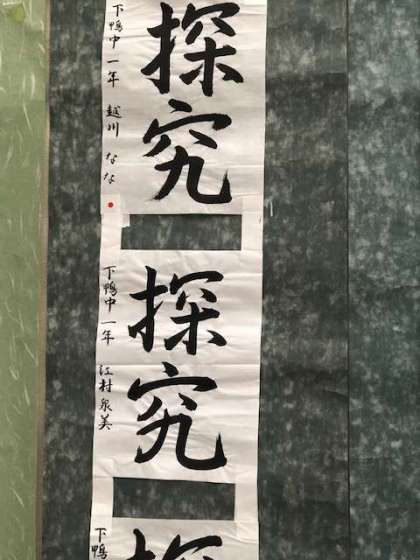 探究
下鴨中一年 越川 なな
探究
下鴨中一年 江村泉美
探
下鴨